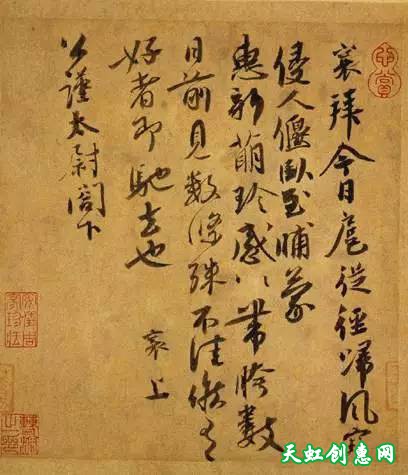 襄拜今日扈從徑歸風寒
侵人偃臥至晡蒙
惠新萠珍感〻帶胯數
日前見數條殊不佳候有
好者即馳去也 襄上
公謹太尉閣下
天虹创惠网